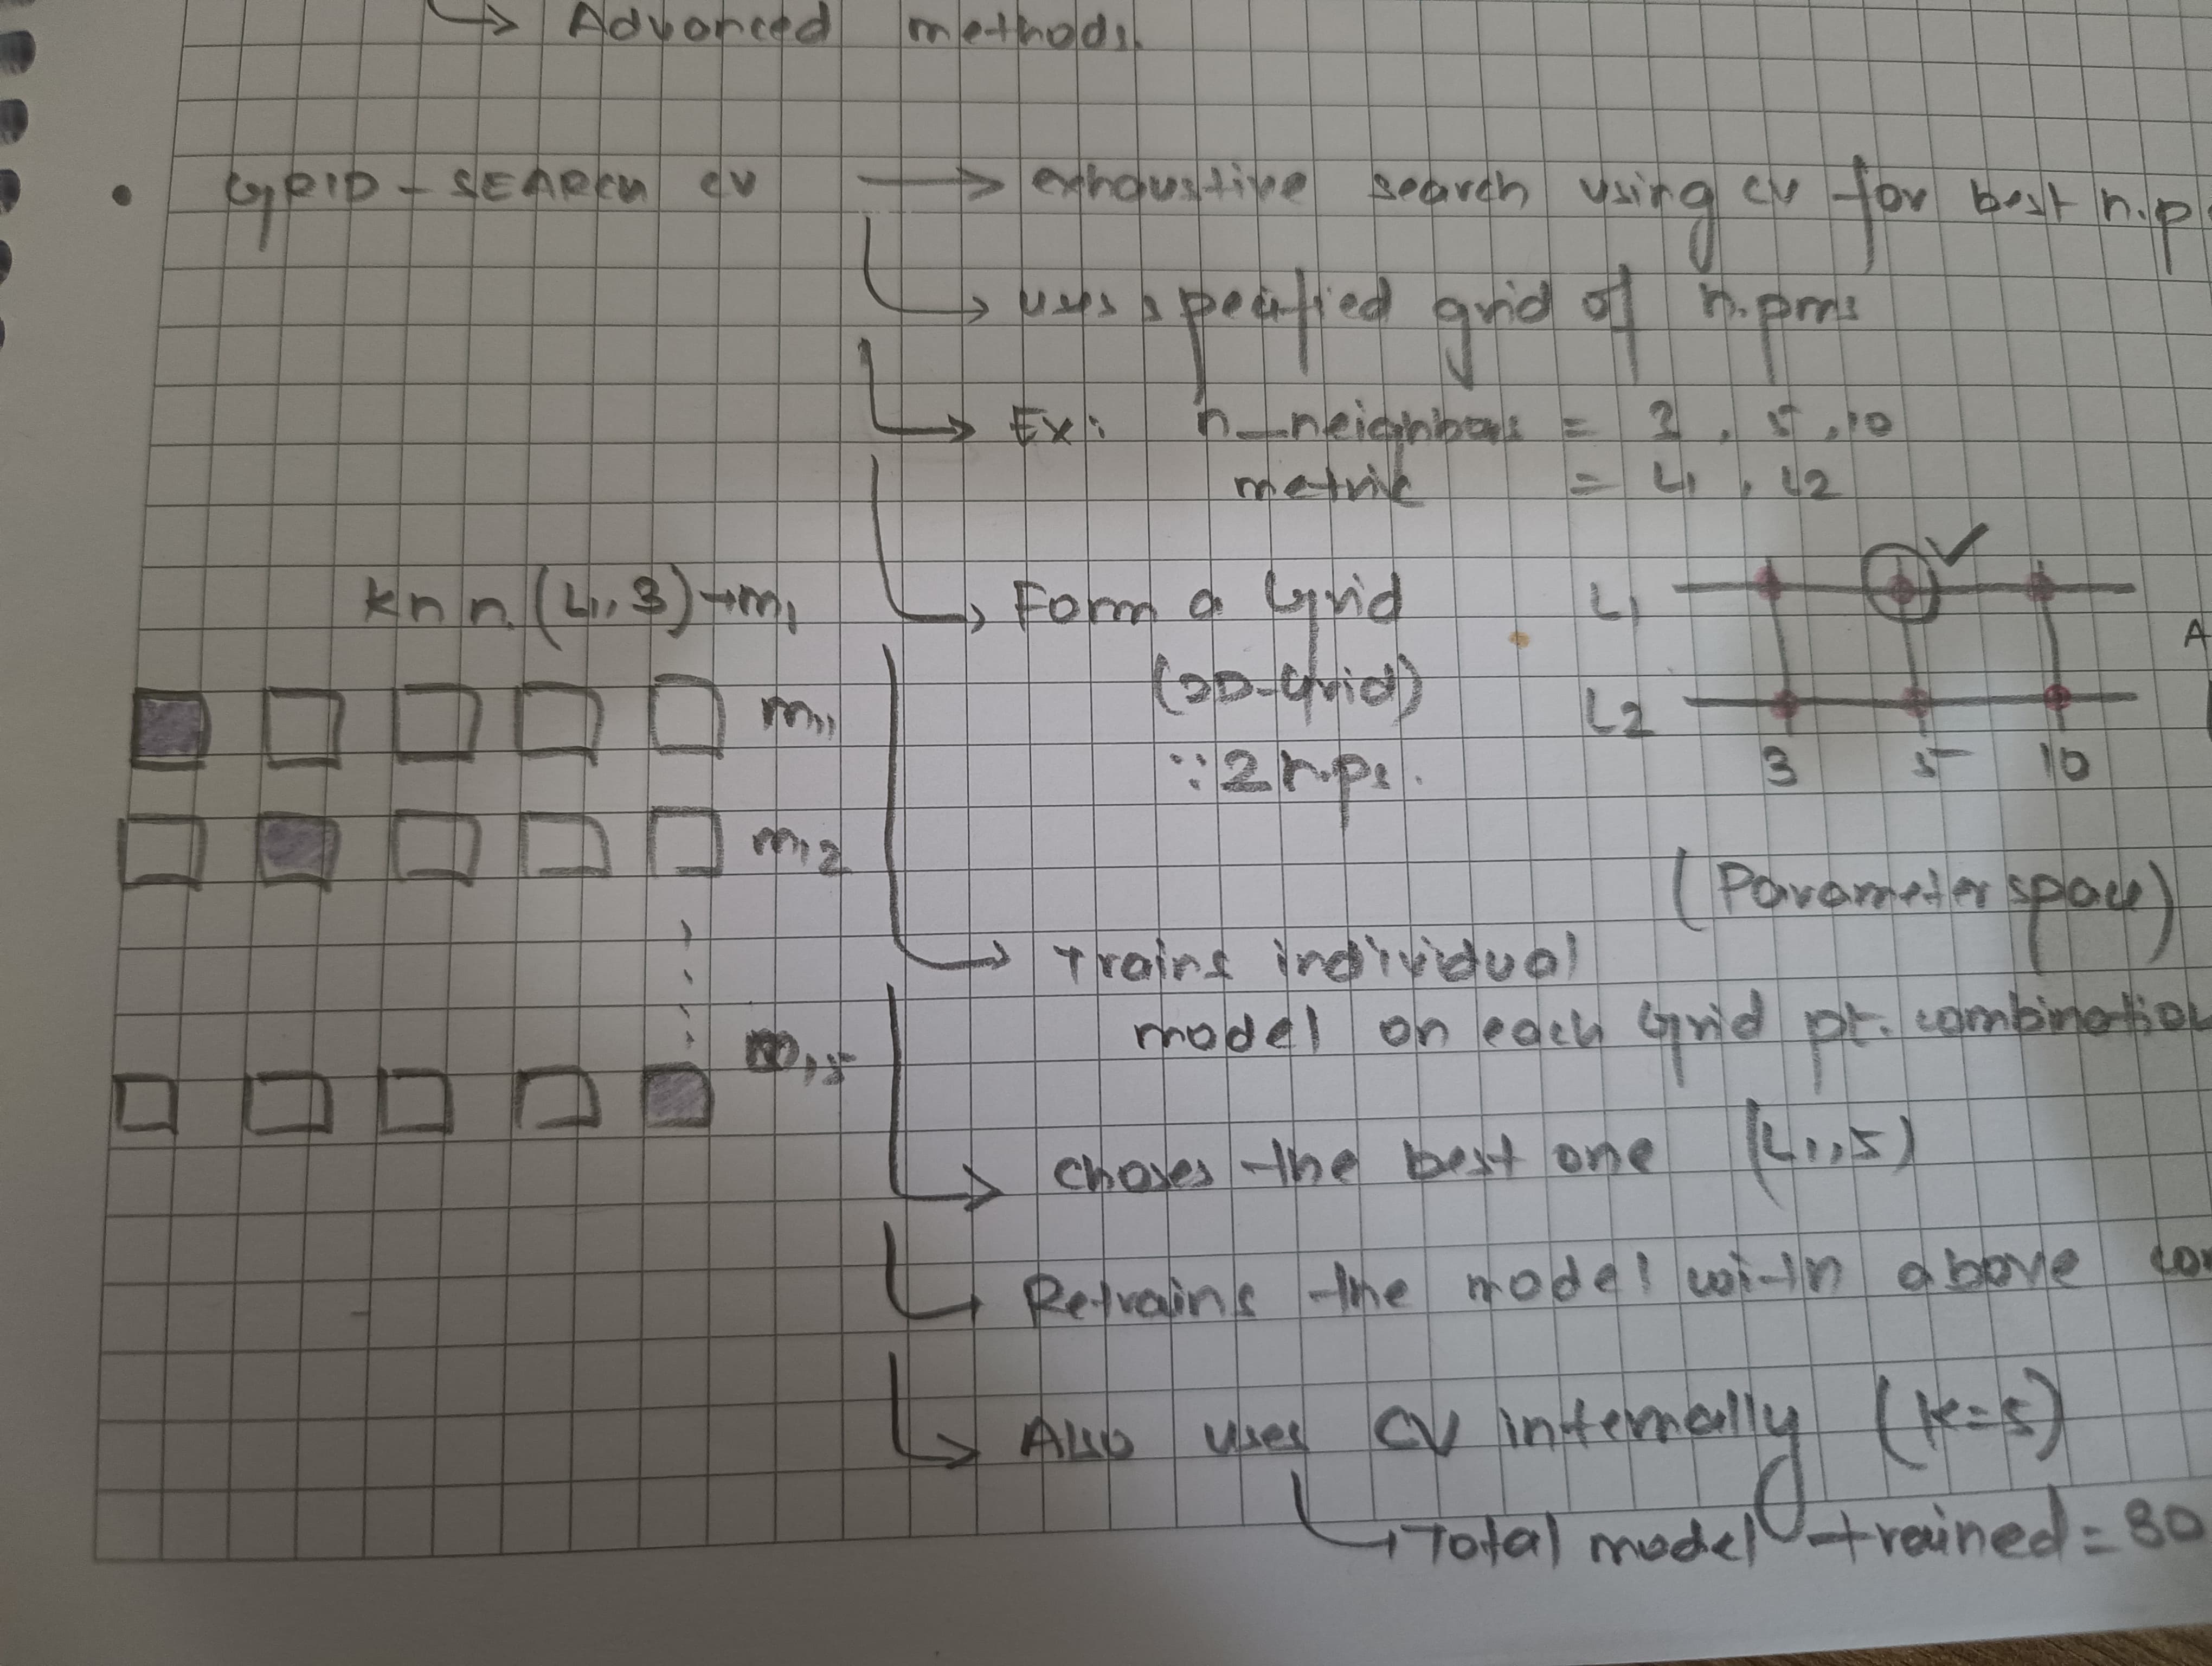 ↳ Advanced methods.
• GRID - SEARCH CV → exhaustive search using cv for best h.p
↳ uses specified grid of h.pms
↳ Ex: n_neighbors = 3, 5, 10
metric = L1, L2
knn (L1, 3) → m1
↳ Form a Grid
(2D-Grid)
∵ 2 h.ps.
L1
L2
3 5 10
(Parameter space)
m11
m12
m15
↳ Trains individual
model on each Grid pt. combination
↳ choses the best one (L1, 5)
↳ Retrains the model with above
↳ Also uses CV internally (K=5)
↳ Total model trained = 30